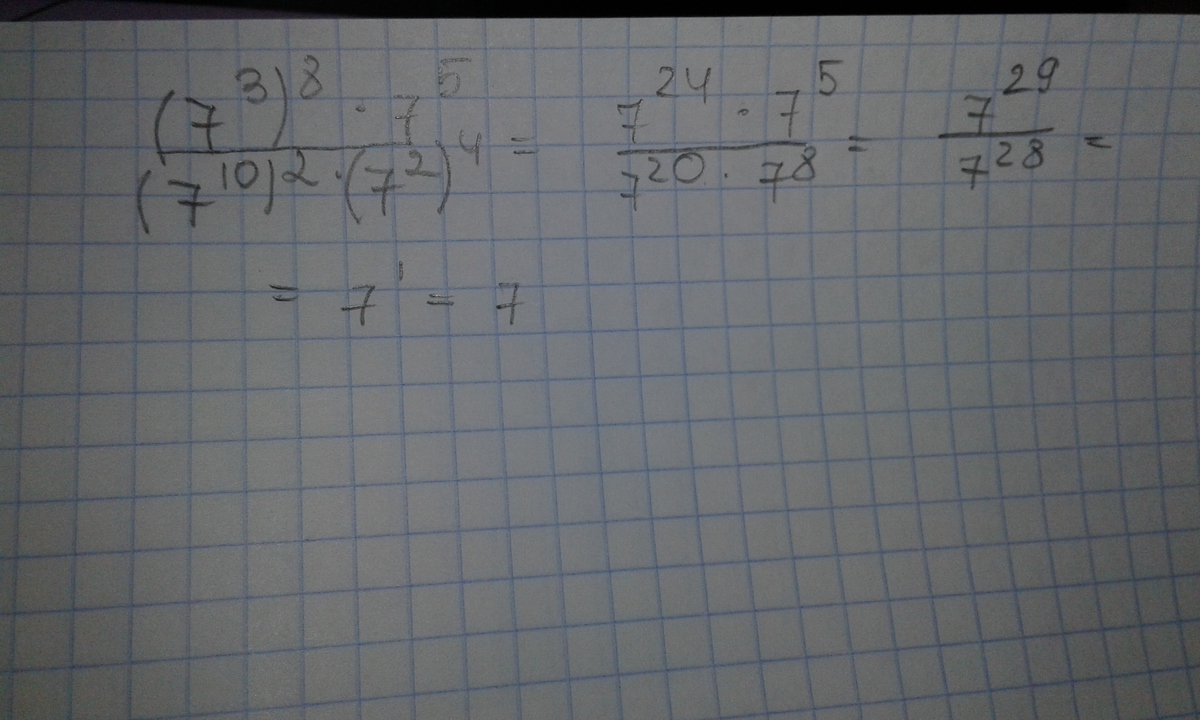 (7³)⁸ · 7⁵ / (7¹⁰)² · (7²)⁴ = 7²⁴ · 7⁵ / 7²⁰ · 7⁸ = 7²⁹ / 7²⁸ =
= 7¹ = 7